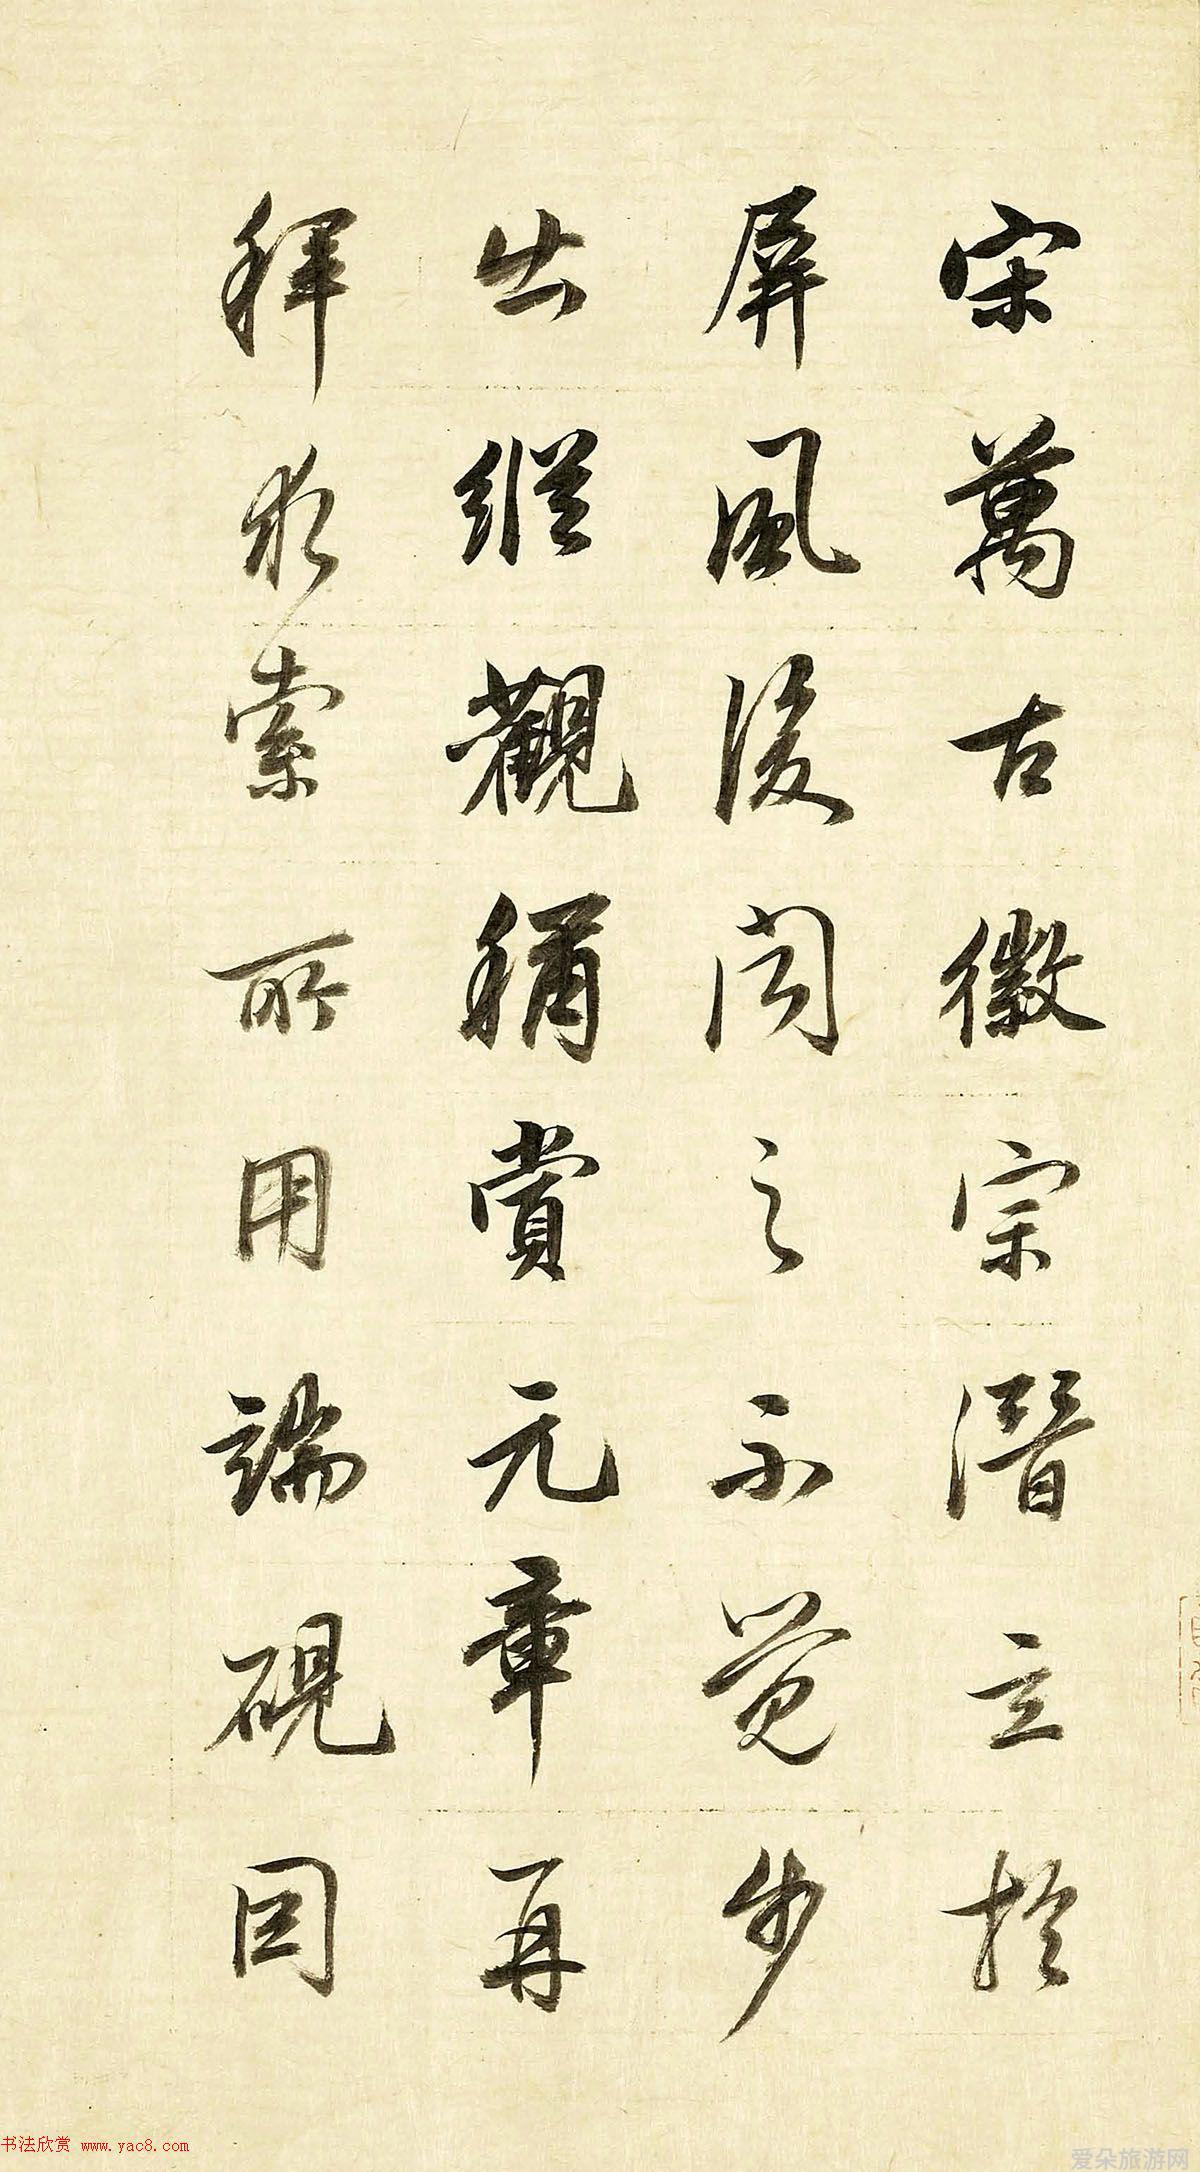 宋萬古徽宗潛立於
屏風後聞之不覺步
出縱觀稱賞元章再
拜求索所用端硯因
书法欣赏 www.yac8.com
爱朵旅游网